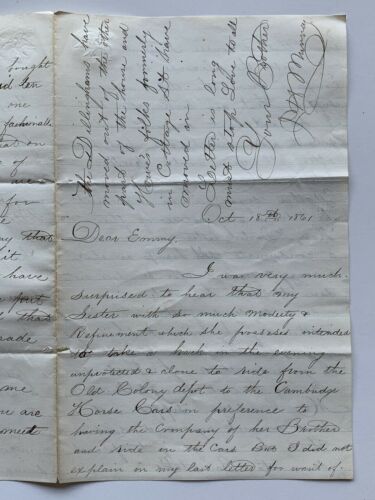 bought
ten
one
fashionable
that on
of
for
that
it
have
put
that
me
are
meet
the Dillinghams have
moved out of the other
part of the house and
folks formerly
in Cottage St have
moved in
Letter is long
must stop Love to all
Your Brother
Oct 18th 1861
Dear Emmy,
I was very much
surprised to hear that my
Sister with so much Modesty &
Refinement which she possesses intended
to take a hack in the evening
unprotected & alone to ride from the
Old Colony depot to the Cambridge
Horse Cars in preference to
having the Company of her Brother
and ride on the Cars But I did not
explain in my last letter for want of